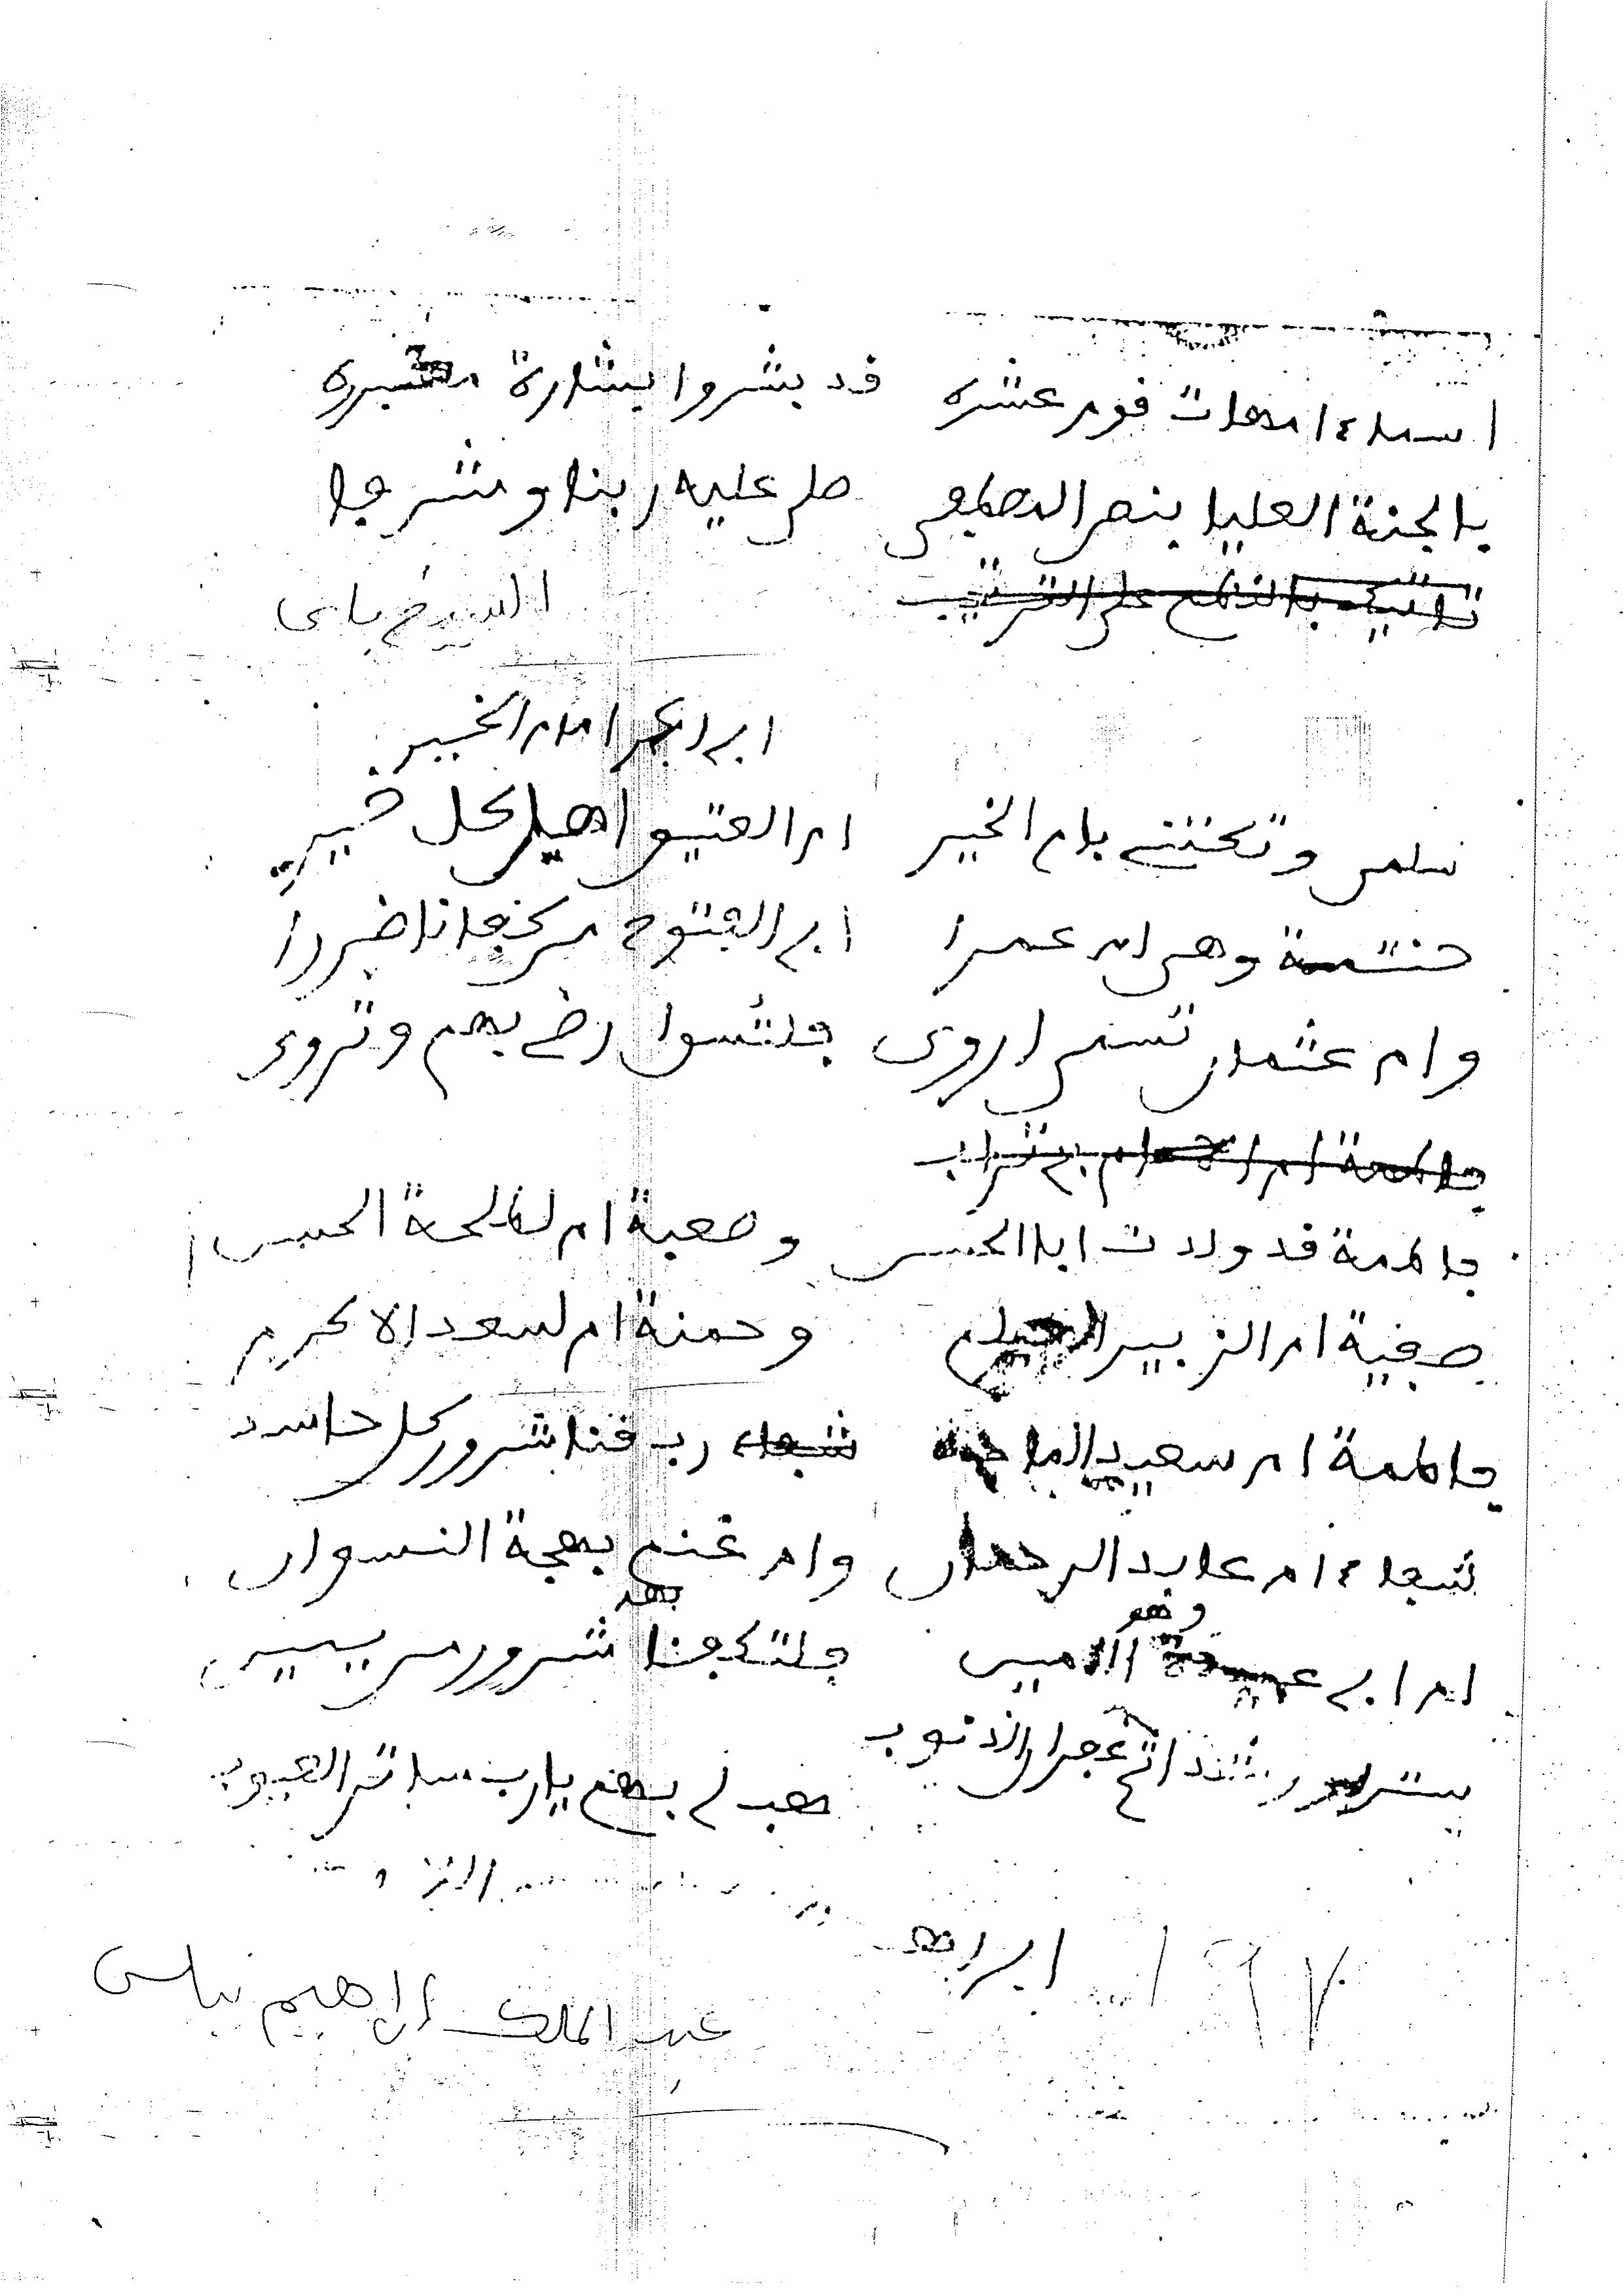 اسماء امهات قوم عشره قد بشروا بشارة محبره
بالجنة العليا بنص المصطفى صلى عليه ربنا وشرفا
تاتيك بالنظم على الترتيب
ابى ابكر امام الخير
سلمى وتكتنى بام الخير ام العتيق اهل كل خير
حنتمة وهى ام عمرا ابى الفتوح من كفانا ضررا
وام عثمان تسمى اروى فلتسوا رضى بهم وتروى
فاطمة ام ابى تراب
فاطمة قد ولدت ابا الحسن وصعبة ام لطلحة الحسن
صفية ام الزبير وحمنة ام لسعد الاكرم
فاطمة ام سعيد الماجد شفاء رب قنا شرور كل حاسد
شفاء ام عابد الرحمان وام غنم بهجة النسوان
وهو بهم
ام ابى عبيدة الامين فلتكفنا شرور من يمين
يستر غفران الذنوب هب لى بهم يارب ساتر العيوب
ابراهيم
عبد الملك ابراهيم نياس